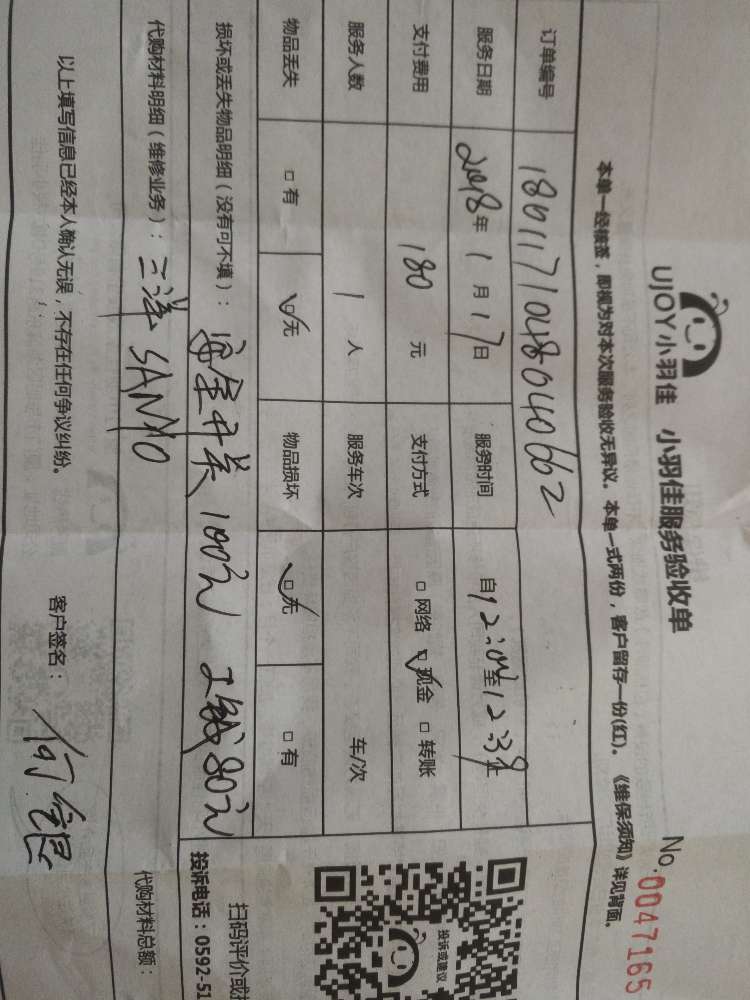 UJOY小羽佳 小羽佳服务验收单
No.0047165
本单一经核签，即视为对本次服务验收无异议。本单一式两份，客户留存一份(红)。《维保须知》详见背面。
订单编号 180117104804062
服务日期 2018年1月17日 服务时间 自12:00至12:30止
支付费用 180元 支付方式 □网络 ☑现金 □转账
服务人数 1人 服务车次 车/次
物品丢失 □有 ☑无 物品损坏 ☑无 □有
损坏或丢失物品明细（没有可不填）： 开关 100元 80元
代购材料明细（维修业务）：三洋 SANYO
代购材料总额：
以上填写信息已经本人确认无误，不存在任何争议纠纷。 客户签名：
投诉或建议
扫码评价或
投诉电话：0592-51